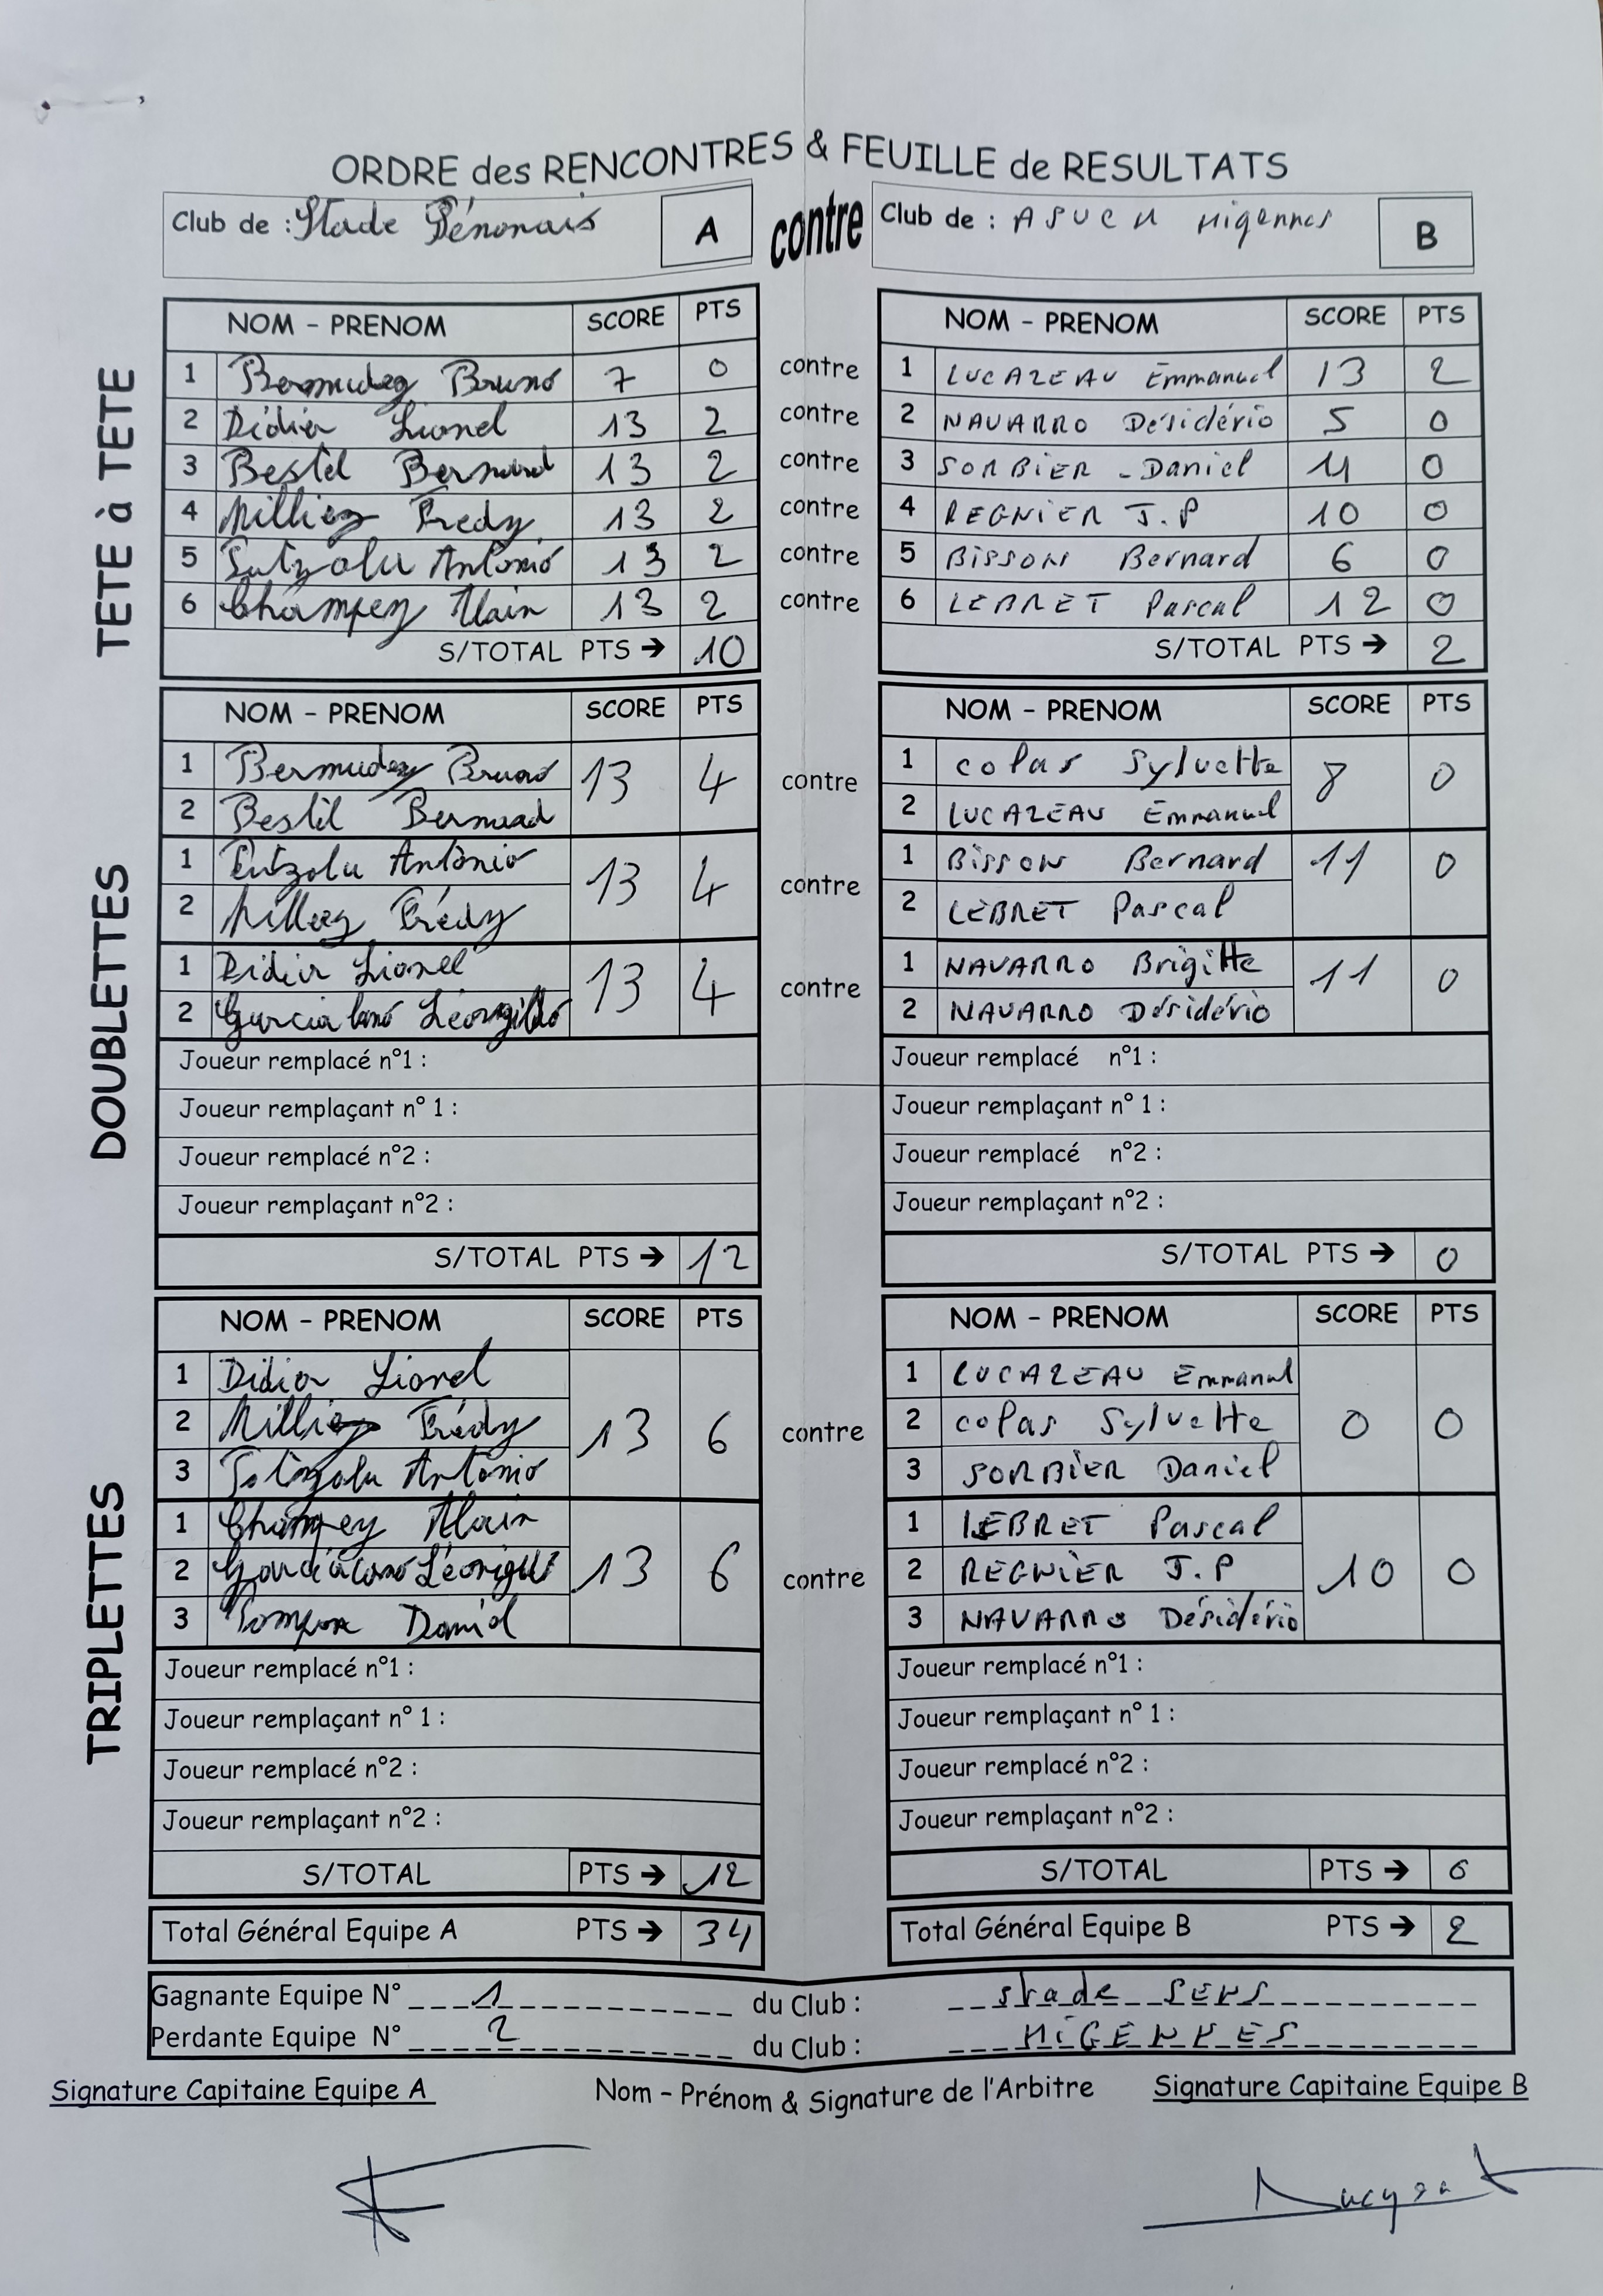 ORDRE des RENCONTRES & FEUILLE de RESULTATS
Club de : Stade Sénonais A contre Club de : ASUCM Migennes B
TETE à TETE
NOM - PRENOM SCORE PTS NOM - PRENOM SCORE PTS
1 Bermudez Bruno 7 0 contre 1 LUCAZEAU Emmanuel 13 2
2 Didier Lionel 13 2 contre 2 NAVARRO Désidério 5 0
3 Bestel Bernard 13 2 contre 3 SORBIER - Daniel 11 0
4 Milliez Fredy 13 2 contre 4 REGNIER J.P 10 0
5 Putzolu Antonio 13 2 contre 5 BISSON Bernard 6 0
6 Champey Alain 13 2 contre 6 LEBRET Pascal 12 0
S/TOTAL PTS → 10 S/TOTAL PTS → 2
DOUBLETTES
NOM - PRENOM SCORE PTS NOM - PRENOM SCORE PTS
1 Bermudez Bruno 13 4 contre 1 colas Sylvette 8 0
2 Bestel Bernard 2 LUCAZEAU Emmanuel
1 Putzolu Antonio 13 4 contre 1 Bisson Bernard 11 0
2 Milliez Frédy 2 LEBRET Pascal
1 Didier Lionel 13 4 contre 1 NAVARRO Brigitte 11 0
2 Garcia 2 NAVARRO Désidério
Joueur remplacé n°1 : Joueur remplacé n°1 :
Joueur remplaçant n° 1 : Joueur remplaçant n° 1 :
Joueur remplacé n°2 : Joueur remplacé n°2 :
Joueur remplaçant n°2 : Joueur remplaçant n°2 :
S/TOTAL PTS → 12 S/TOTAL PTS → 0
TRIPLETTES
NOM - PRENOM SCORE PTS NOM - PRENOM SCORE PTS
1 Didier Lionel 1 LUCAZEAU Emmanuel
2 Milliez Frédy 13 6 contre 2 colas Sylvette 0 0
3 Putzolu Antonio 3 SORBIER Daniel
1 Champey Alain 1 LEBRET Pascal
2 13 6 contre 2 REGNIER J.P 10 0
3 Daniel 3 NAVARRO Désidério
Joueur remplacé n°1 : Joueur remplacé n°1 :
Joueur remplaçant n° 1 : Joueur remplaçant n° 1 :
Joueur remplacé n°2 : Joueur remplacé n°2 :
Joueur remplaçant n°2 : Joueur remplaçant n°2 :
S/TOTAL PTS → 12 S/TOTAL PTS → 0
Total Général Equipe A PTS → 34 Total Général Equipe B PTS → 2
Gagnante Equipe N° 1 du Club : stade SENS
Perdante Equipe N° 2 du Club : MIGENNES
Signature Capitaine Equipe A Nom - Prénom & Signature de l'Arbitre Signature Capitaine Equipe B